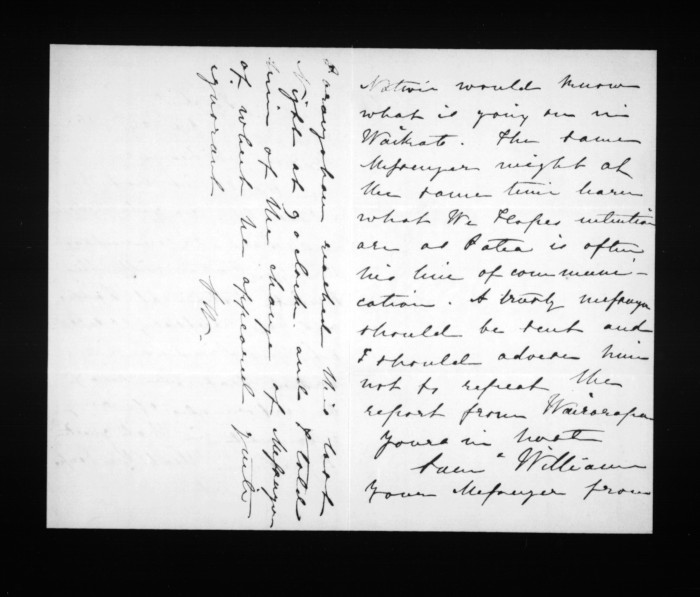 Natives would know
what is going on in
Waikato. The same
Messenger might at
the same time learn
what Te Hapes intentions
are as Patea is often
his line of communi-
cation. A trusty messenger
should be sent and
I should advise him
not to repeat the
report from Wairarapa
Yours in haste
Saml Williams
Your Messenger from
reached this last
Night at 9 oclock and I told
him of the change of Messenger
of what he appeared quite
ignorant
SW